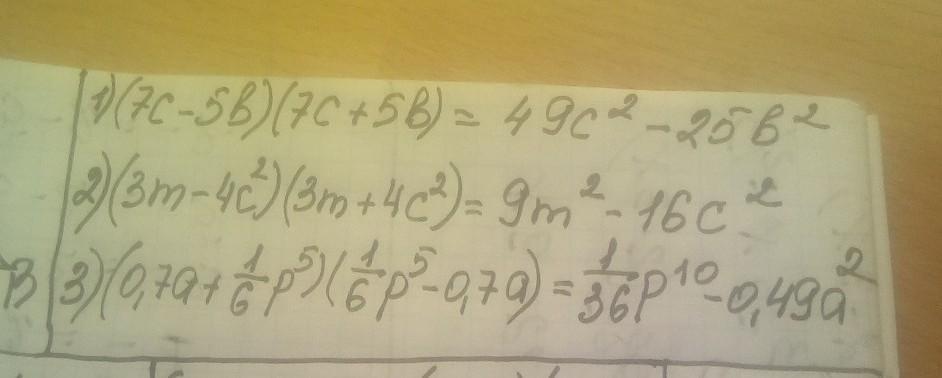 1) (7c - 5b)(7c + 5b) = 49c² - 25b²
2) (3m - 4c²)(3m + 4c²) = 9m² - 16c²
B 3) (0,7a + 1/6 p⁵)(1/6 p⁵ - 0,7a) = 1/36 p¹⁰ - 0,49a²